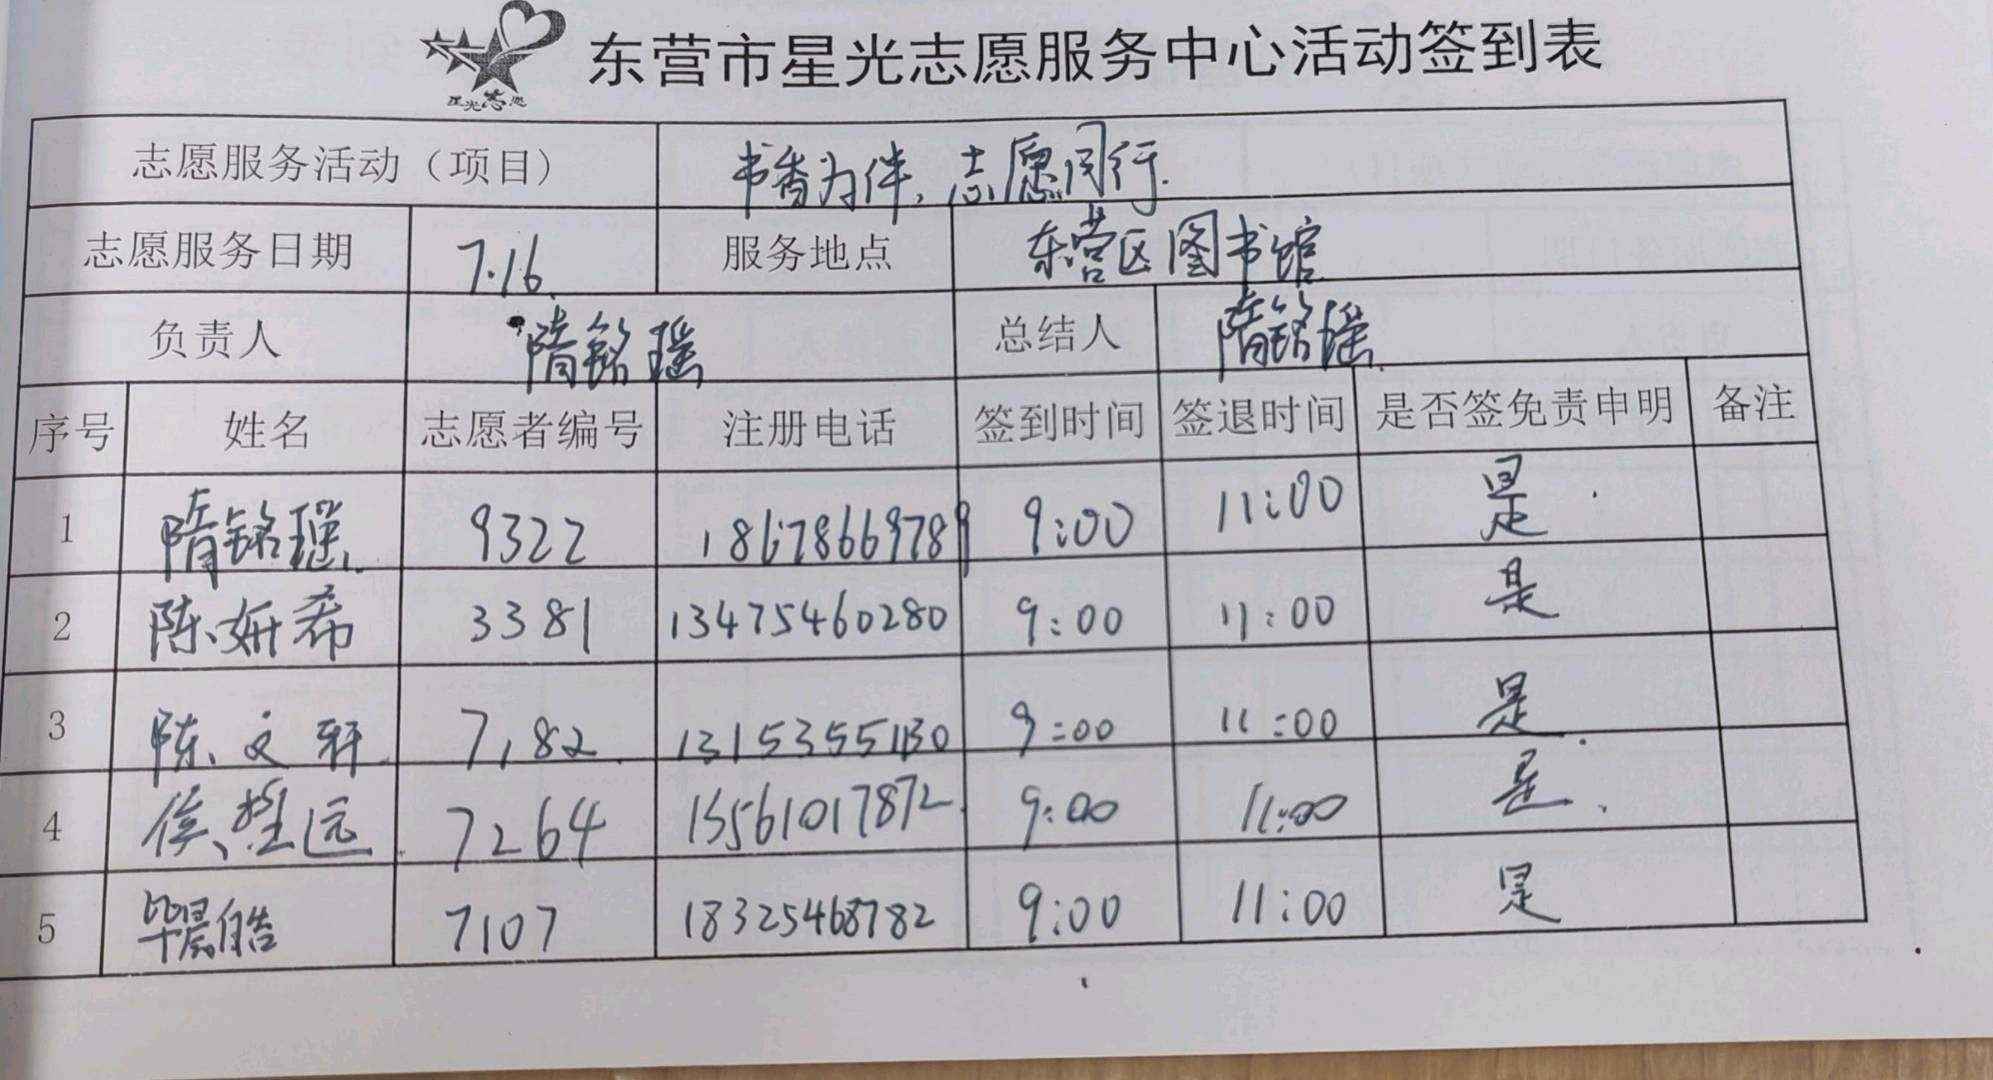 星光志愿
东营市星光志愿服务中心活动签到表
志愿服务活动（项目） 书香为伴，志愿同行.
志愿服务日期 7.16. 服务地点 东营区图书馆
负责人 隋铭瑶 总结人 隋铭瑶
序号 姓名 志愿者编号 注册电话 签到时间 签退时间 是否签免责申明 备注
1 隋铭瑶 9322 18678669789 9:00 11:00 是
2 陈妍希 3381 13475460280 9:00 11:00 是
3 陈文轩 7182 13153551130 9:00 11:00 是
4 侯远 7264 13561017872 9:00 11:00 是
5 毕晨皓 7107 18325468782 9:00 11:00 是